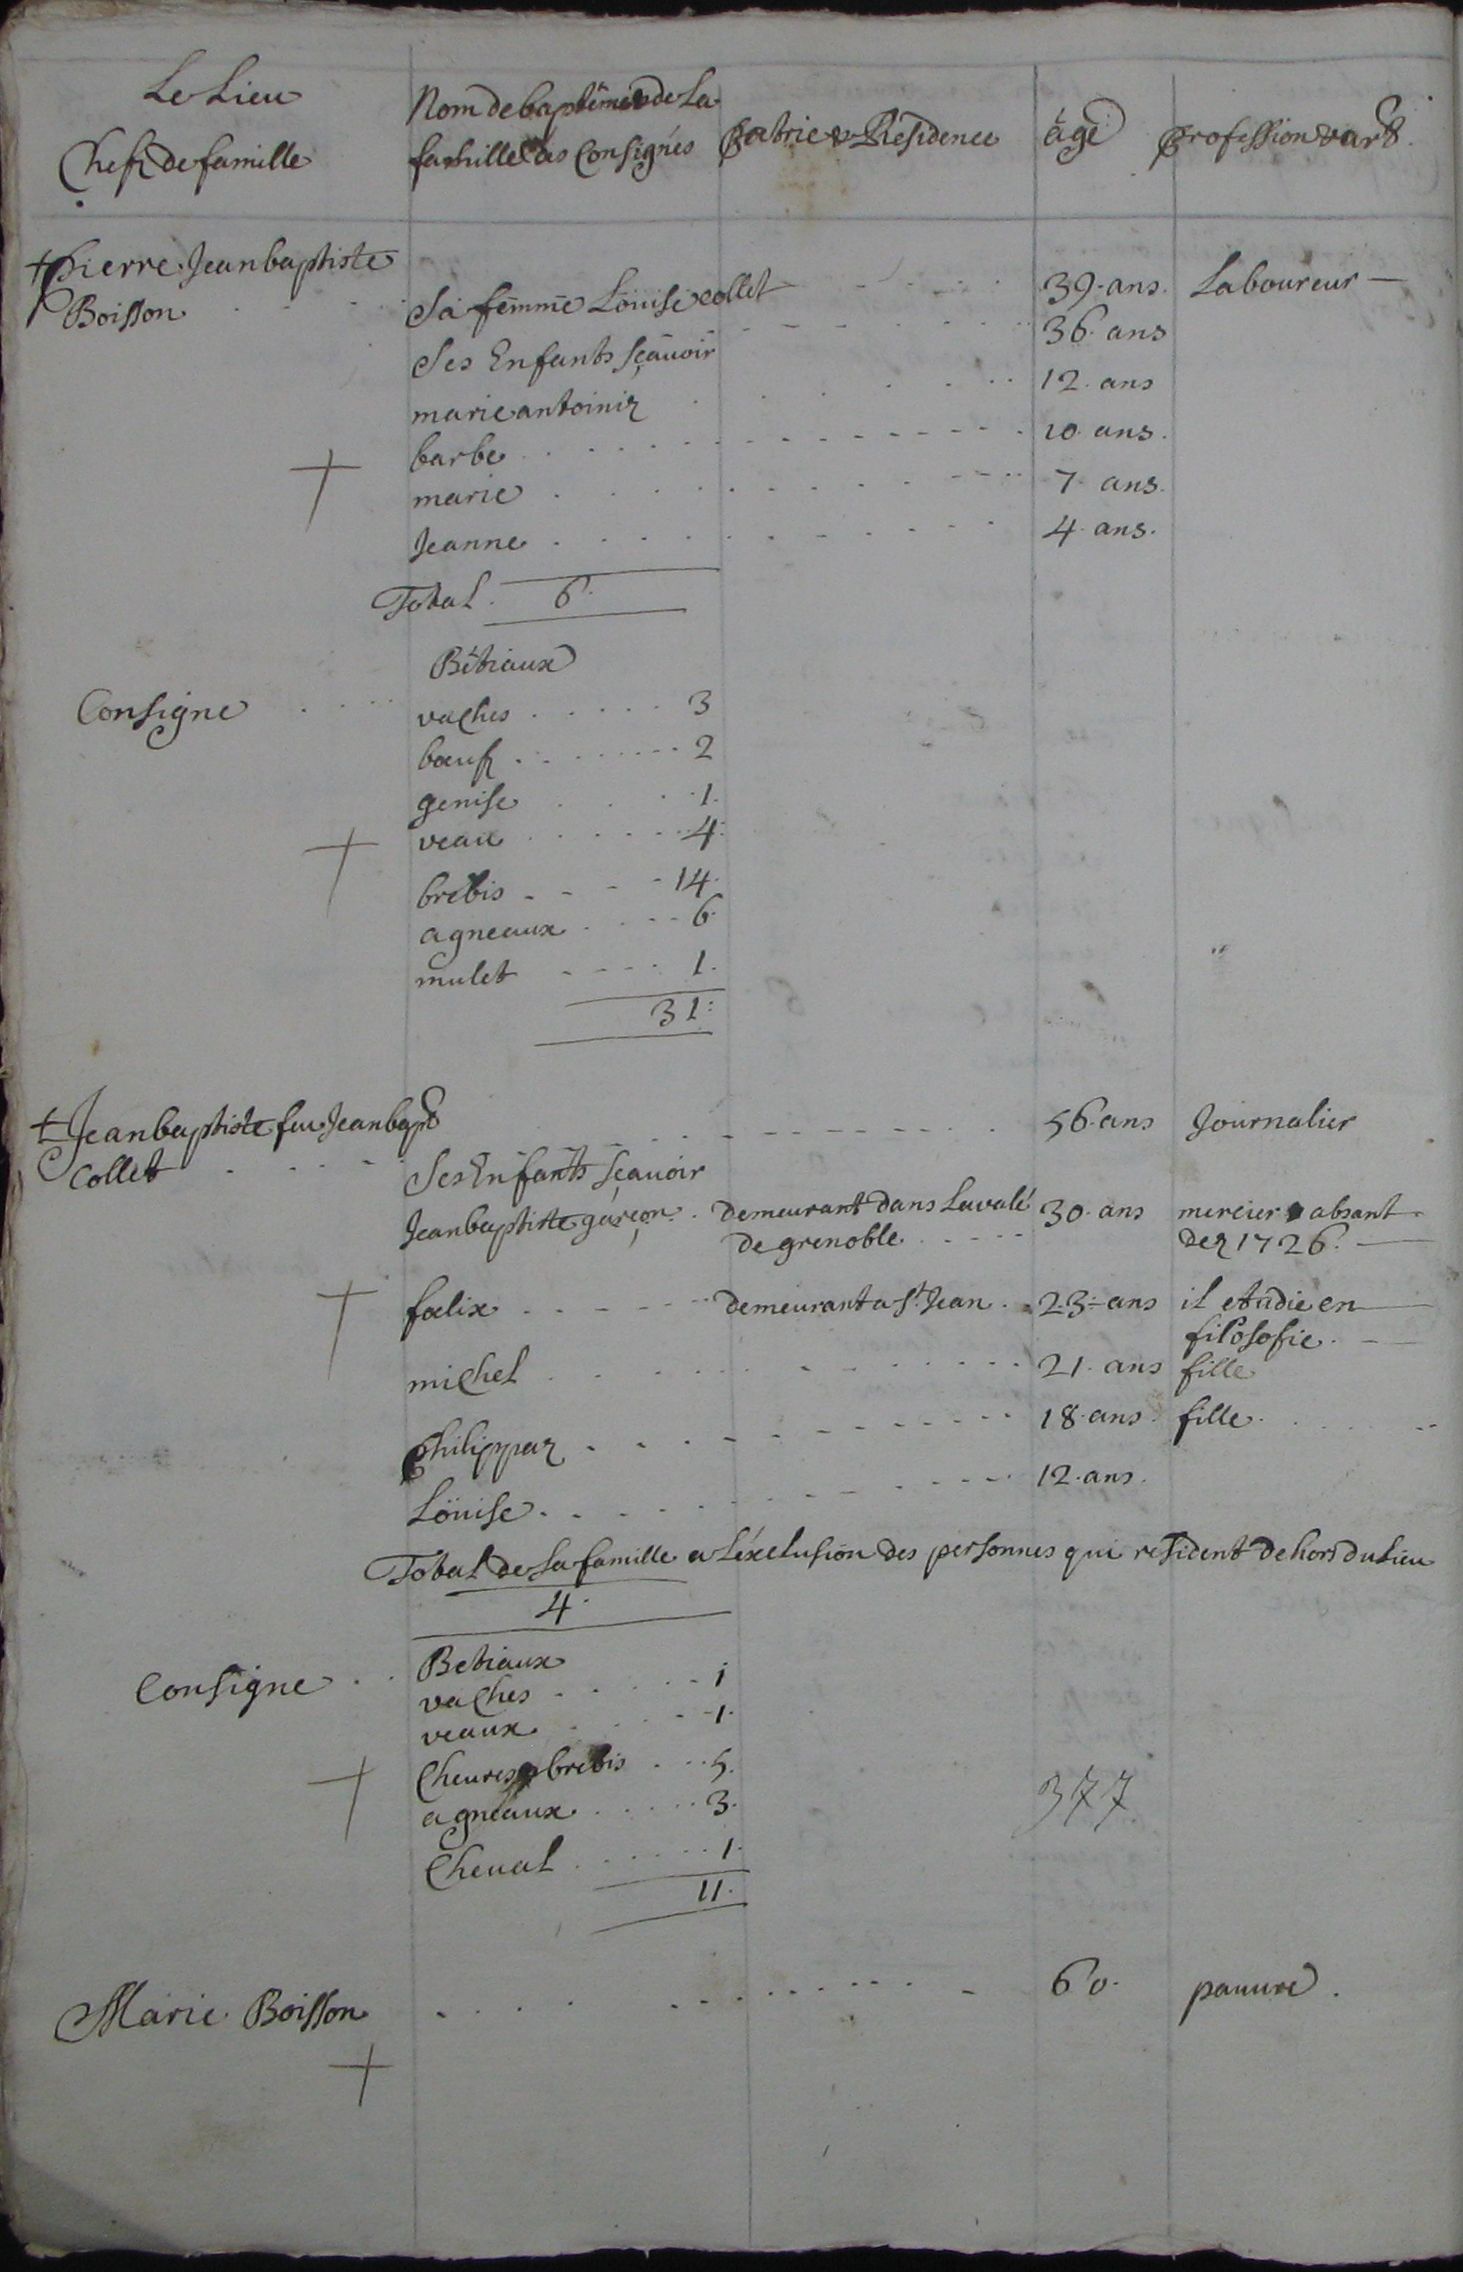 Le Lieu
Chefz de famille
Nom de baptême de La
famille des Consignés
patrie & Residence
âgé
profession & art
+ pierre Jeanbaptiste
Boisson
39. ans. Laboureur
Sa femme Loüise collet 36. ans
Ses Enfants sçauoir
marie antoiniz 12. ans
barbe 10. ans.
marie 7. ans.
Jeanne 4. ans.
Total. 6.
Consigne
Bétiaux
vaches 3
bœufz 2
genise 1.
veau 4.
brebis 14.
agneaux 6.
mulet 1.
31.
+ Jeanbaptiste feu Jeanbapt
Collet
56. ans Journalier
Ses Enfants sçauoir
Jeanbaptiste garçon. demeurant dans Lavalé 30. ans mercier absant
de grenoble dez 1726.
fœlix demeurant a St. Jean. 23. ans il etudie en
filosofie.
michel 21. ans fille
philippaz 18. ans. fille.
Loüise. 12. ans.
Total de La famille a Léxclusion des personnes qui resident dehors du Lieu
4.
Consigne
Betiaux
vaches 1
veaux 1.
Cheures & brebis 5.
agneaux 3.
Cheual 1.
11.
377.
Marie Boisson 60. pauure.